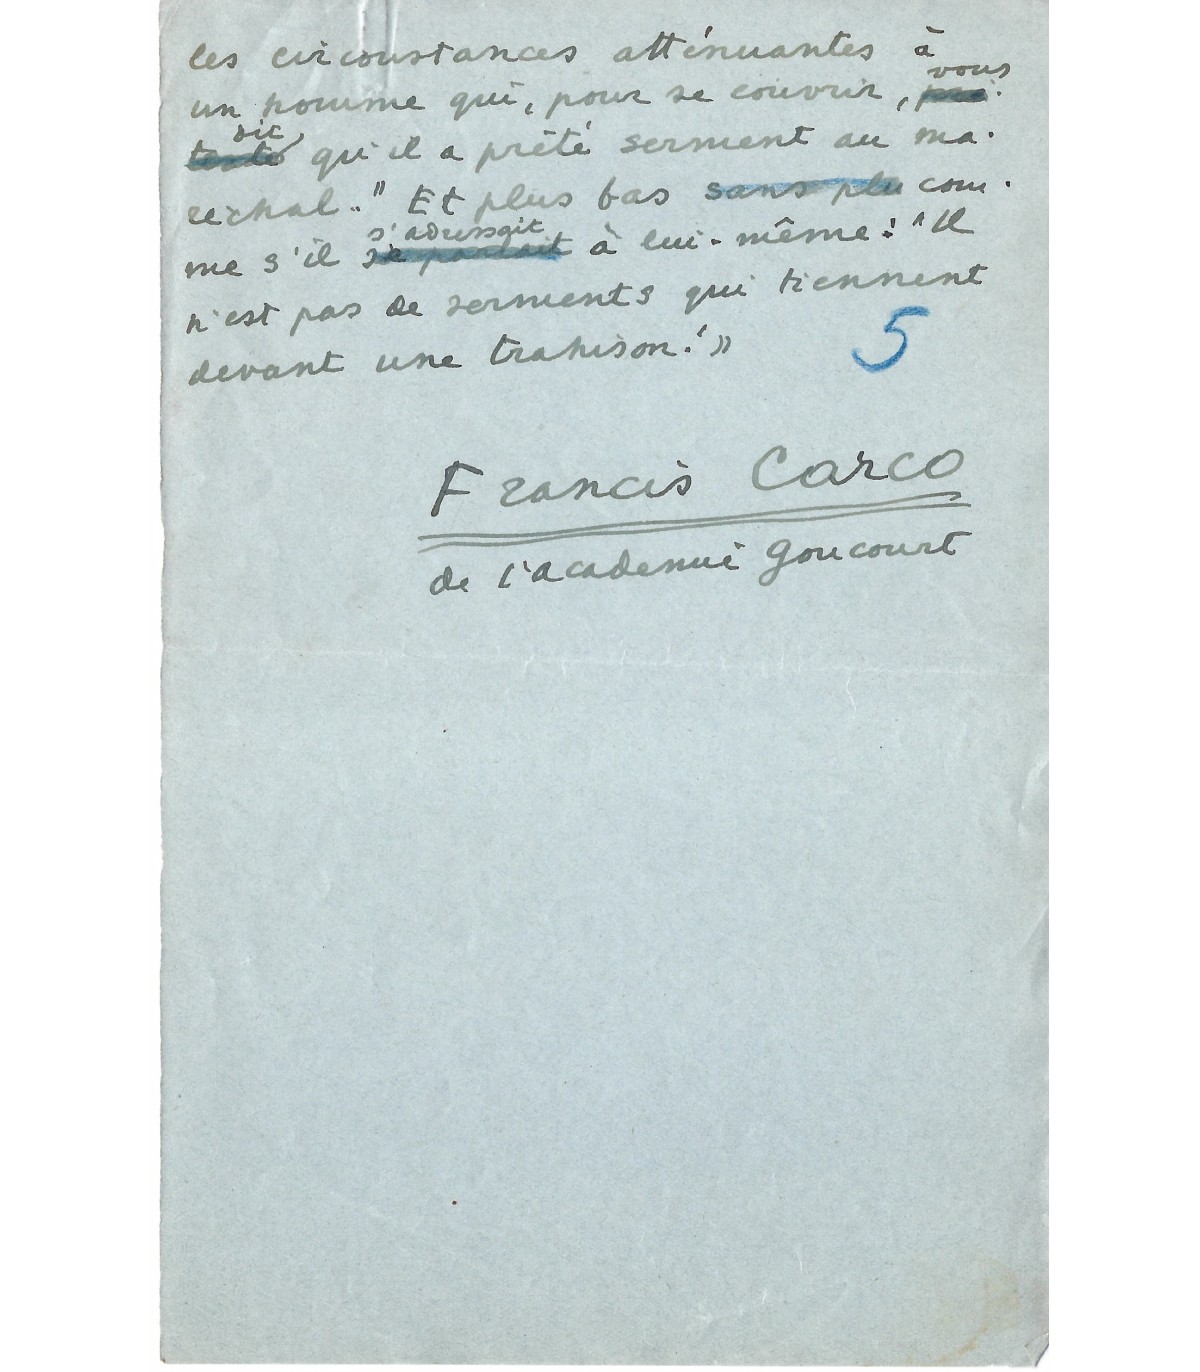 les circonstances atténuantes à
un homme qui, pour se couvrir, vous
dit qu'il a prêté serment au ma-
réchal." Et plus bas sans plu com-
me s'il s'adressait à lui-même : "Il
n'est pas de serments qui tiennent
devant une trahison !"
5
Francis Carco
de l'academie Goncourt